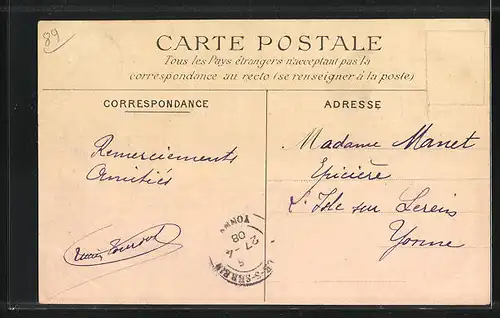 89
CARTE POSTALE
Tous les Pays étrangers n'acceptant pas la
correspondance au recto (se renseigner à la poste)
CORRESPONDANCE
Remerciements
Amitiés
ADRESSE
Madame Manet
Epicière
L'Isle sur Serein
Yonne
27 -4
08
YONNE